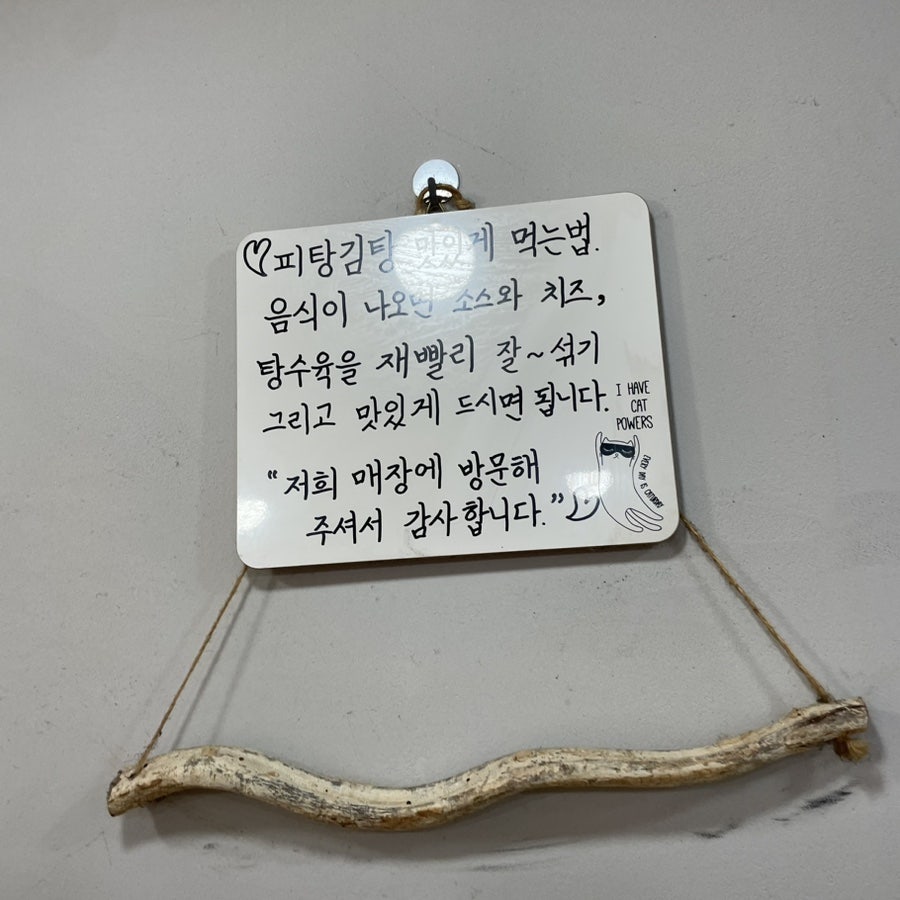 ♡피탕김탕 맛있게 먹는법.
음식이 나오면 소스와 치즈,
탕수육을 재빨리 잘~섞기
그리고 맛있게 드시면 됩니다.
I HAVE
CAT
POWERS
EVERY DAY IS CATURDAY
"저희 매장에 방문해
주셔서 감사합니다."